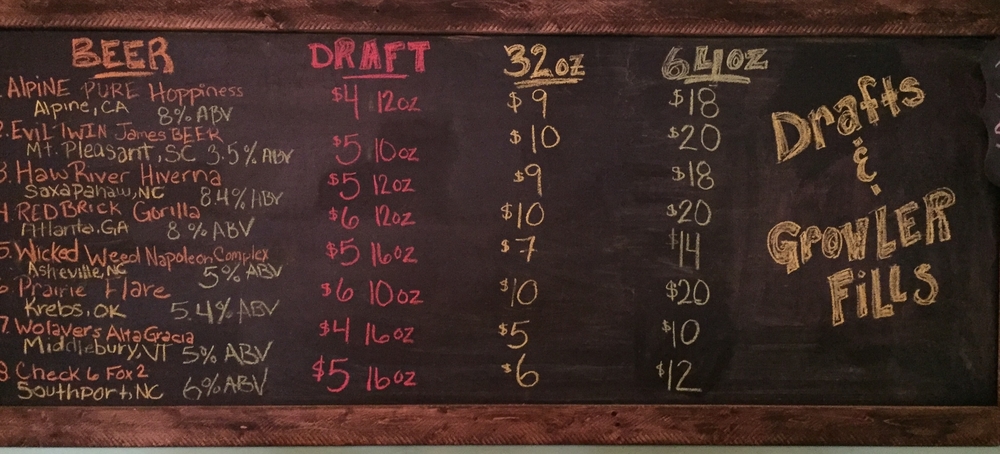 BEER DRAFT 32oz 64oz
1. ALPINE PURE Hoppiness
Alpine, CA 8% ABV $4 12oz $9 $18
2. EVIL TWIN James BEER
Mt. Pleasant, SC 3.5% ABV $5 10oz $10 $20
3. Haw River Hiverna
Saxapahaw, NC 8.4% ABV $5 12oz $9 $18
4 RED BRICK Gorilla
Atlanta, GA 8% ABV $6 12oz $10 $20
5. Wicked Weed Napoleon Complex
Asheville, NC 5% ABV $5 16oz $7 $14
6 Prairie Flare
Krebs, OK 5.4% ABV $6 10oz $10 $20
7. Wolavers Alta Gracia
Middlebury, VT 5% ABV $4 16oz $5 $10
8 Check 6 Fox 2
Southport, NC 6% ABV $5 16oz $6 $12
Drafts
&
GROWLER
FiLLS